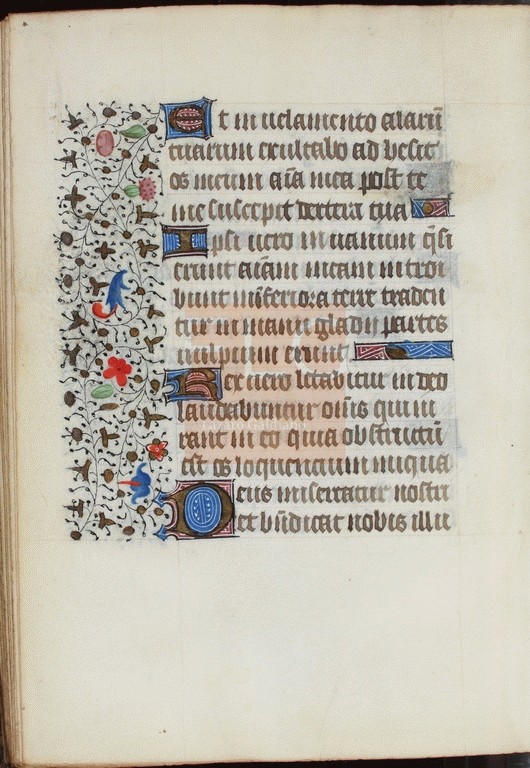 Et in uelamento alarū
tuarum exultabo adhesit
os meum aīa mea post te
me suscepit dextera tua
Ipsi uero in uanum q̄si
erunt aīam meam introi
bunt in inferiora terre traden
tur in manu gladij partes
uulpium erunt
Rex uero letabitur in deo
laudabuntur om̄s qui iu
rant in eo quia obstructū
est os loquentium iniqua
Deus misereatur nostri
et bn̄dicat nobis illu